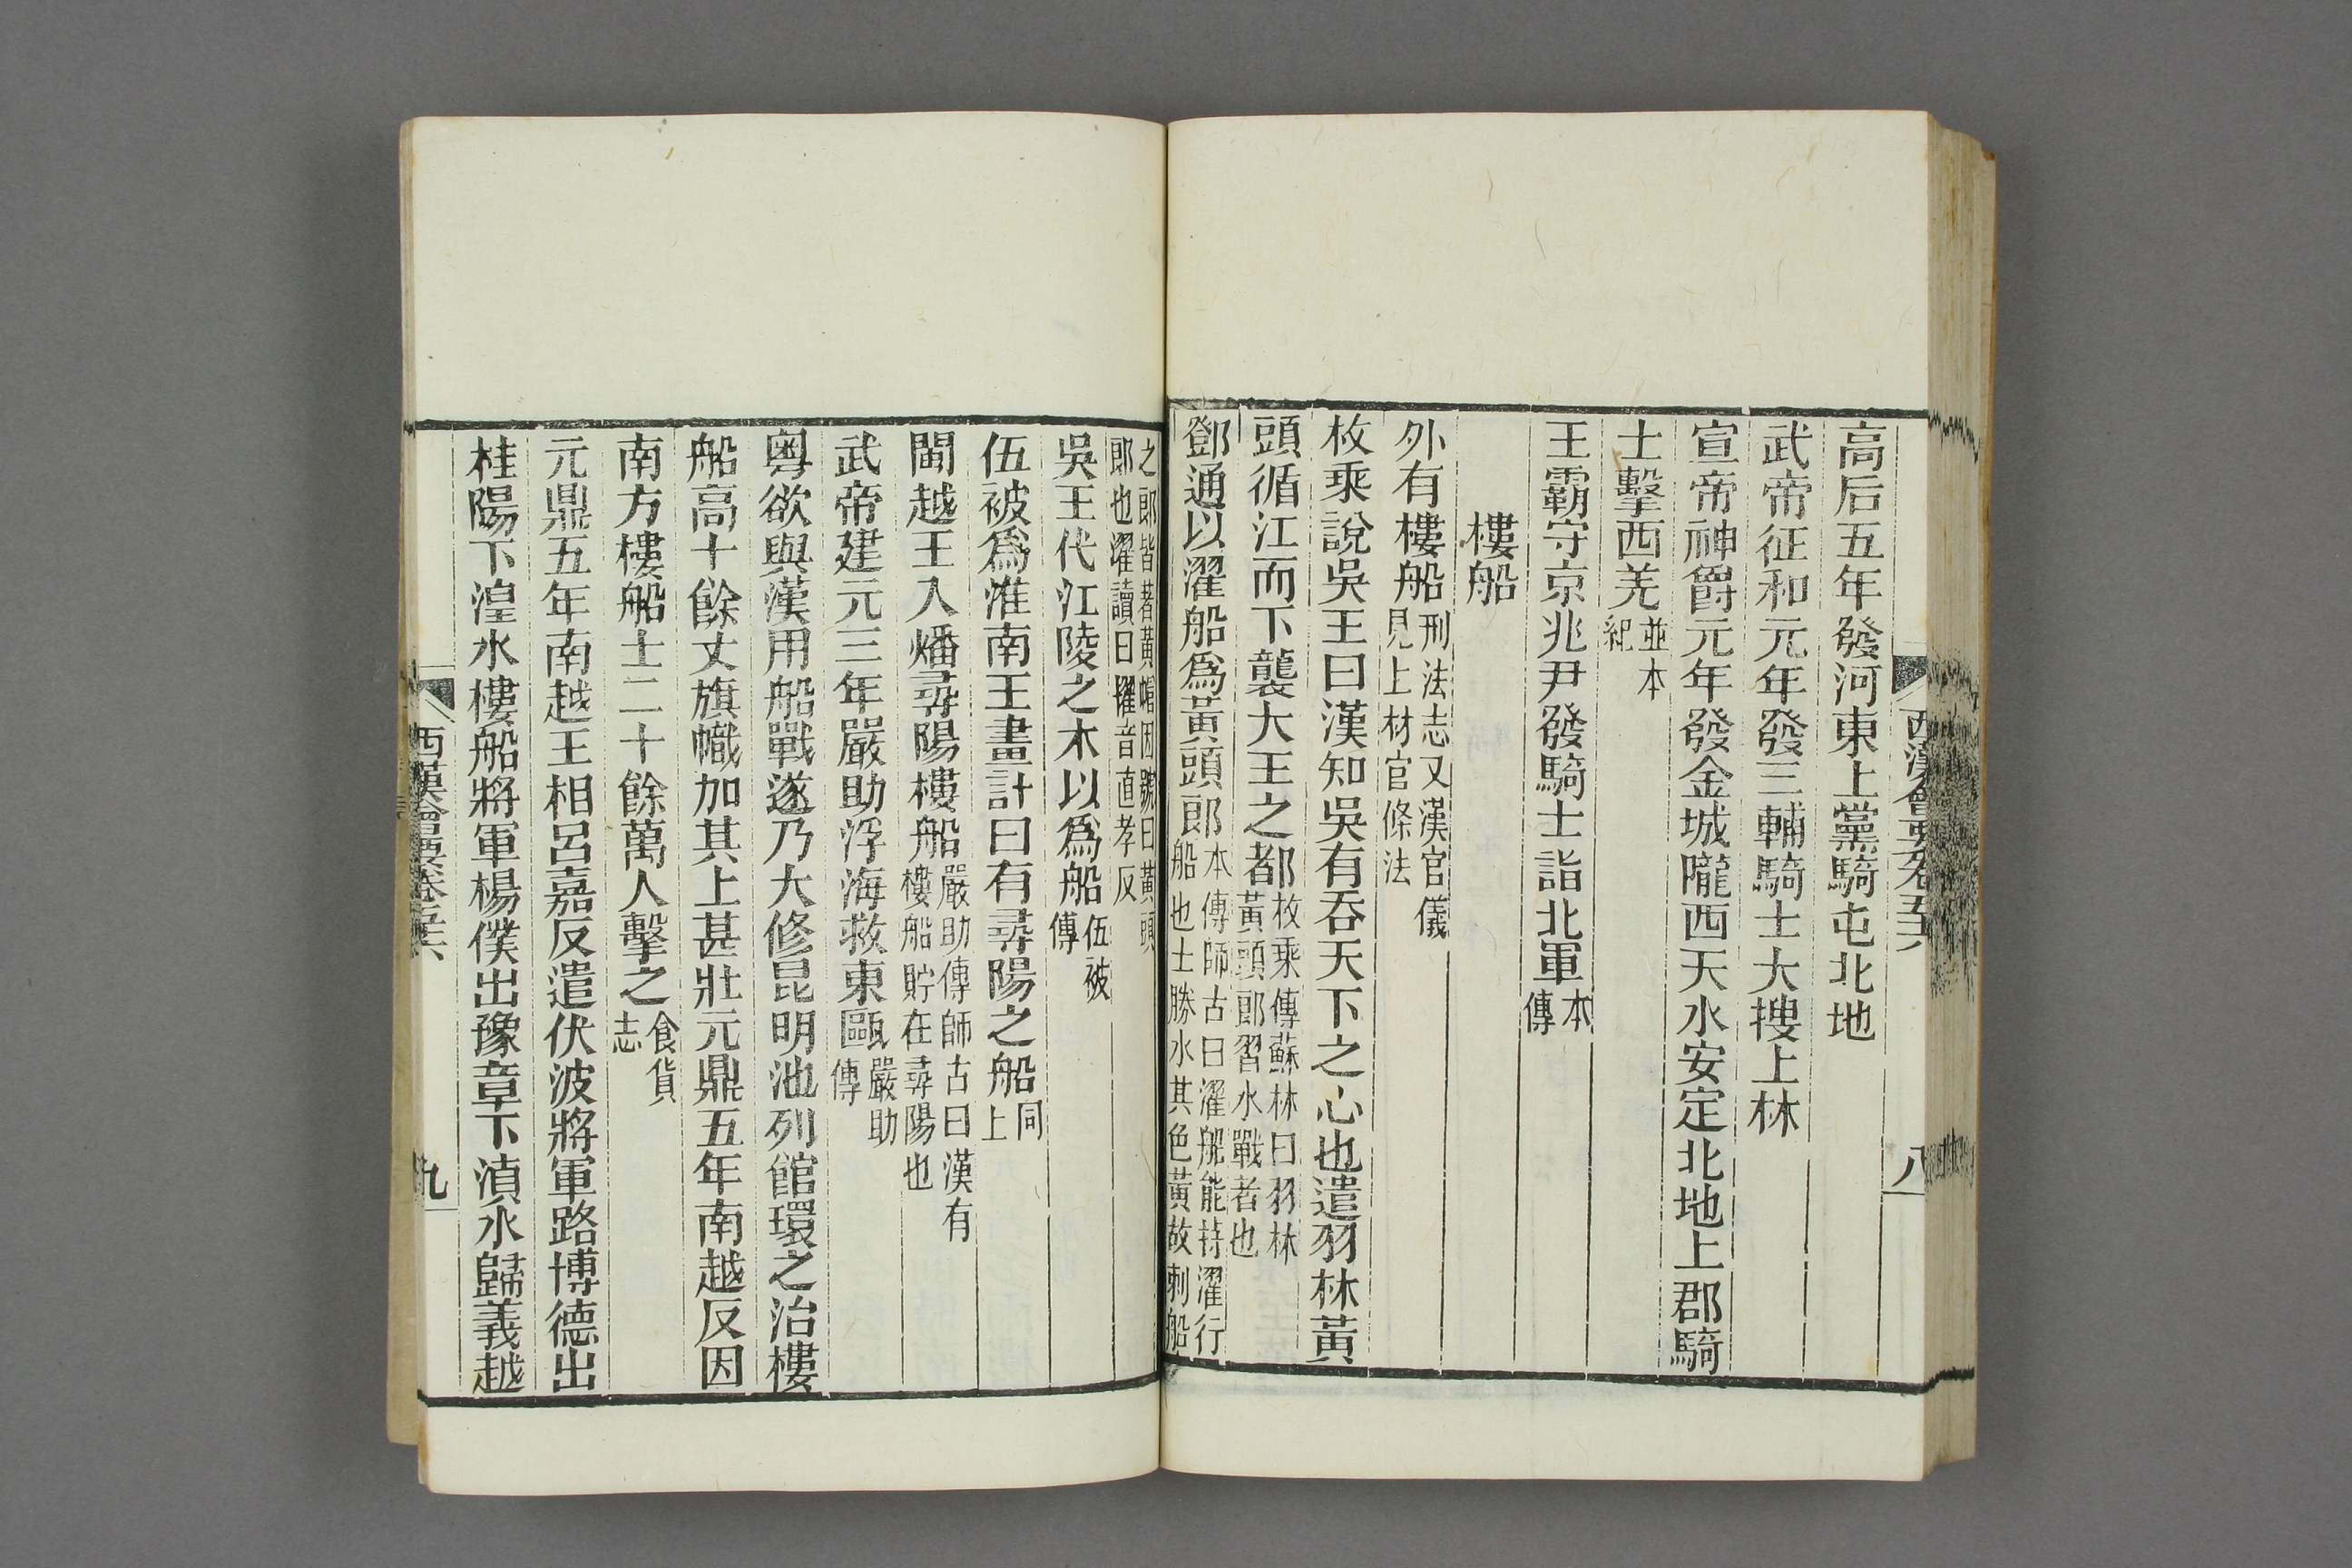 西漢會要卷五十六
八
高后五年發河東上黨騎屯北地
武帝征和元年發三輔騎士大搜上林
宣帝神爵元年發金城隴西天水安定北地上郡騎
士擊西羌並本紀
王霸守京兆尹發騎士詣北軍本傳
樓船
外有樓船刑法志又漢官儀見上材官條法
枚乘說吳王曰漢知吳有吞天下之心也遣羽林黃
頭循江而下襲大王之都枚乘傳蘇林曰羽林黃頭郎習水戰者也
鄧通以濯船爲黃頭郎本傳師古曰濯船能持濯行船也土勝水其色黃故刺船
之郎皆著黃帽因號曰黃頭郎也濯讀曰櫂音直孝反
吳王伐江陵之木以爲船伍被傳
伍被爲淮南王畫計曰有尋陽之船同上
閩越王入燔尋陽樓船嚴助傳師古曰漢有樓船貯在尋陽也
武帝建元三年嚴助浮海救東甌嚴助傳
粵欲與漢用船戰遂乃大修昆明池列館環之治樓
船高十餘丈旗幟加其上甚壯元鼎五年南越反因
南方樓船士二十餘萬人擊之食貨志
元鼎五年南越王相呂嘉反遣伏波將軍路博德出
桂陽下湟水樓船將軍楊僕出豫章下湞水歸義越
西漢會要卷五十六
九